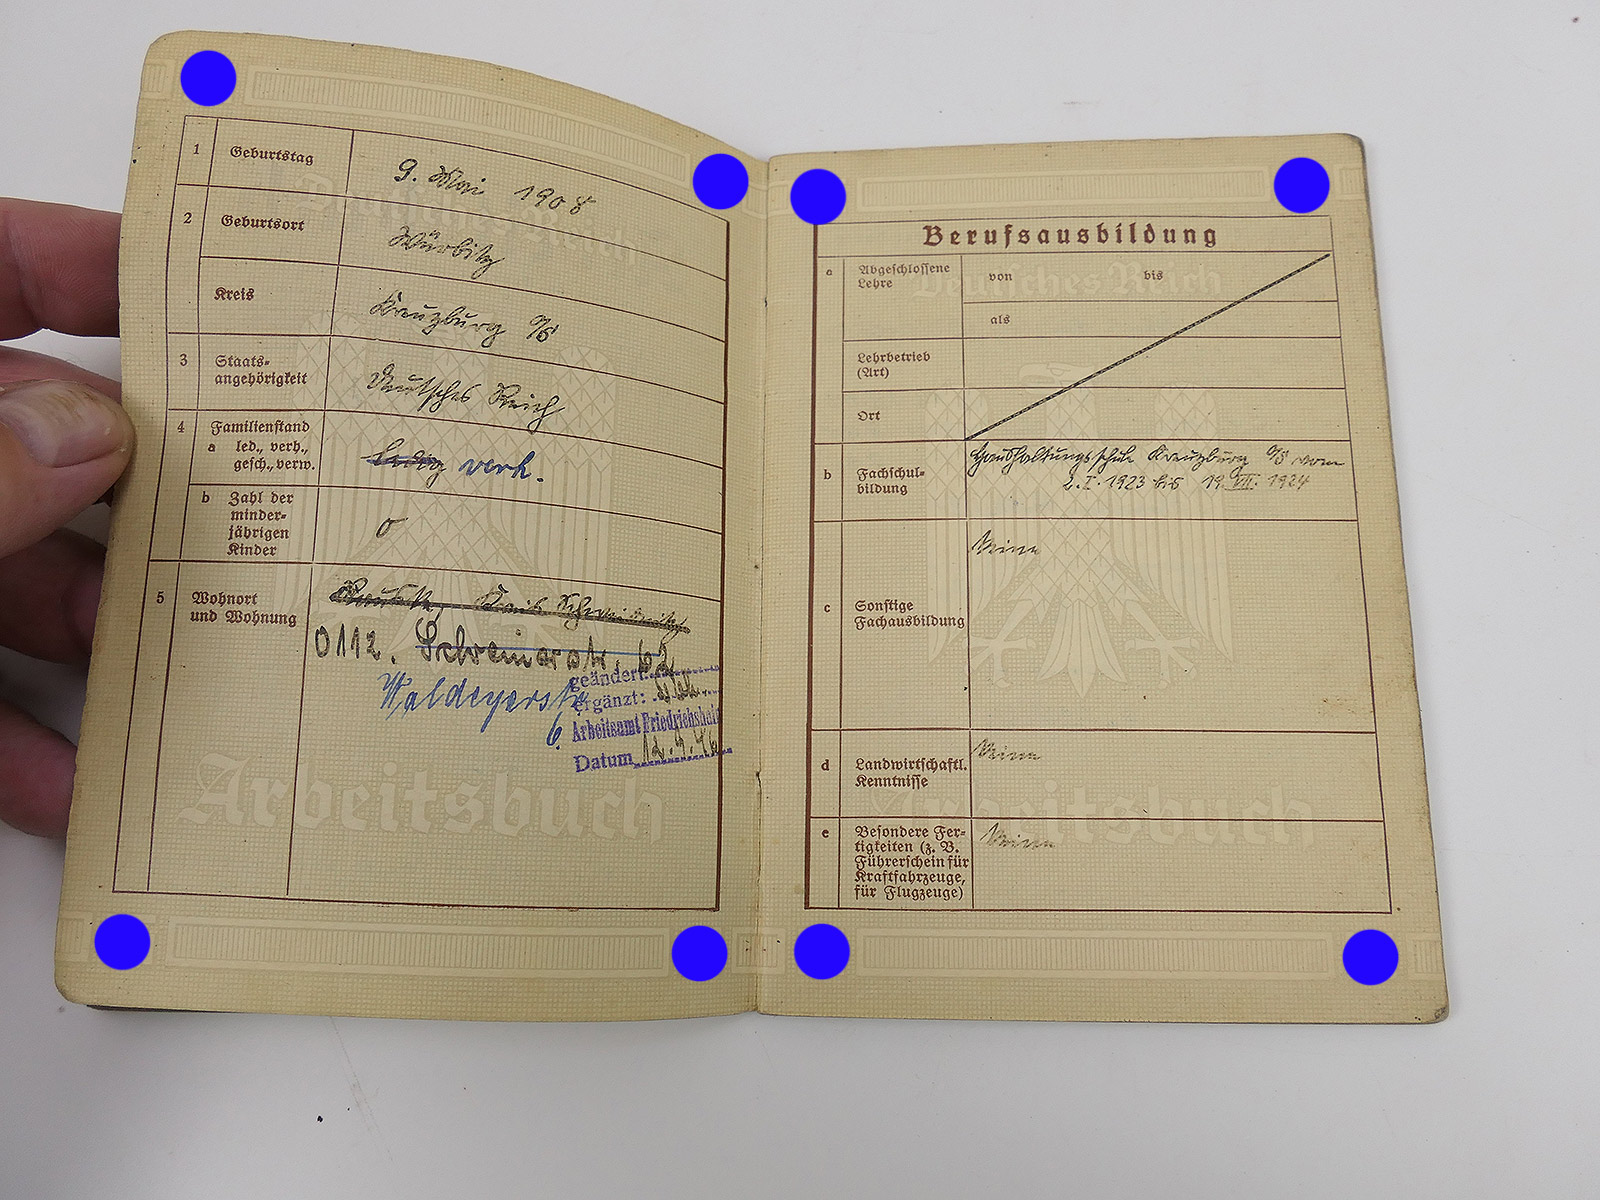 1 Geburtstag 9. Mai 1908
2 Geburtsort Würbitz
Kreis Kreuzburg O/S
3 Staats-
angehörigkeit Deutsches Reich
4 Familienstand
a led., verh.,
gesch., verw. ledig verh.
b Zahl der
minder-
jährigen
Kinder 0
5 Wohnort
und Wohnung
Kreis Schweidnitz
0112. Schreinerstr. 62
Waldeyerstr.
6.
geändert:
ergänzt:
Arbeitsamt Friedrichshain
Datum 12.9.46
Deutsches Reich
Arbeitsbuch
Berufsausbildung
a Abgeschlossene
Lehre
von bis
als
Lehrbetrieb
(Art)
Ort
b Fachschul-
bildung
Haushaltungsschule Kreuzburg O/S vom
2.I.1923 bis 19.VII.1924
c Sonstige
Fachausbildung
Keine
d Landwirtschaftl.
Kenntnisse
Keine
e Besondere Fer-
tigkeiten (z. B.
Führerschein für
Kraftfahrzeuge,
für Flugzeuge)
Keine
Deutsches Reich
Arbeitsbuch